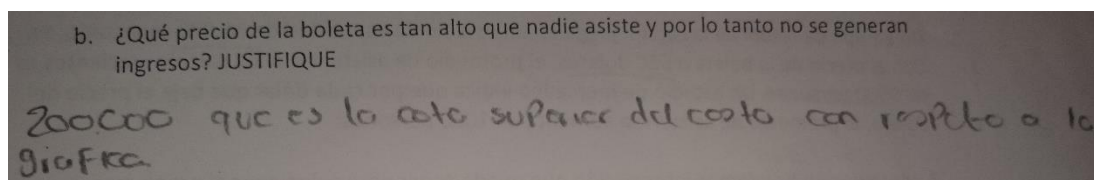 b. ¿Qué precio de la boleta es tan alto que nadie asiste y por lo tanto no se generan
ingresos? JUSTIFIQUE
200.000 que es la cota superior del costo con respecto a la
grafica.